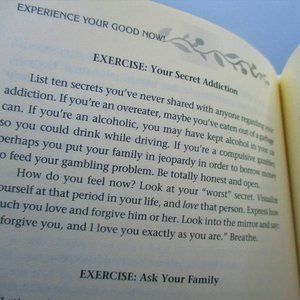 EXPERIENCE YOUR GOOD NOW!
EXERCISE: Your Secret Addiction
List ten secrets you've never shared with anyone regarding your
addiction. If you're an overeater, maybe you've eaten out of a garbage
can. If you're an alcoholic, you may have kept alcohol in your
so you could drink while driving. If you're a compulsive gambler,
perhaps you put your family in jeopardy in order to borrow money
to feed your gambling problem. Be totally honest and open.
How do you feel now? Look at your "worst" secret. Visualize
yourself at that period in your life, and love that person. Express how
much you love and forgive him or her. Look into the mirror and say
forgive you, and I love you exactly as you are." Breathe.
EXERCISE: Ask Your Family